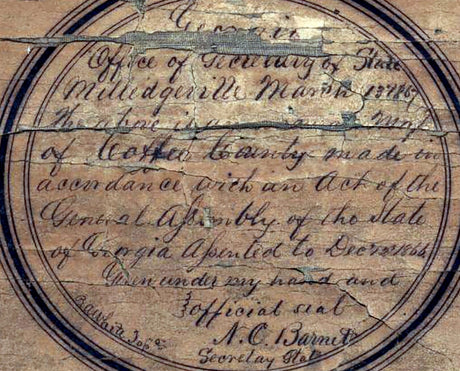 Georgia
Office of Secretary of State
Milledgeville March 1867
The above is a Map
of Coffee County made in
accordance with an Act of the
General Assembly of the State
of Georgia Assented to Dec 1866
Given under my hand and
official seal
N. C. Barnet
Secretay Stat